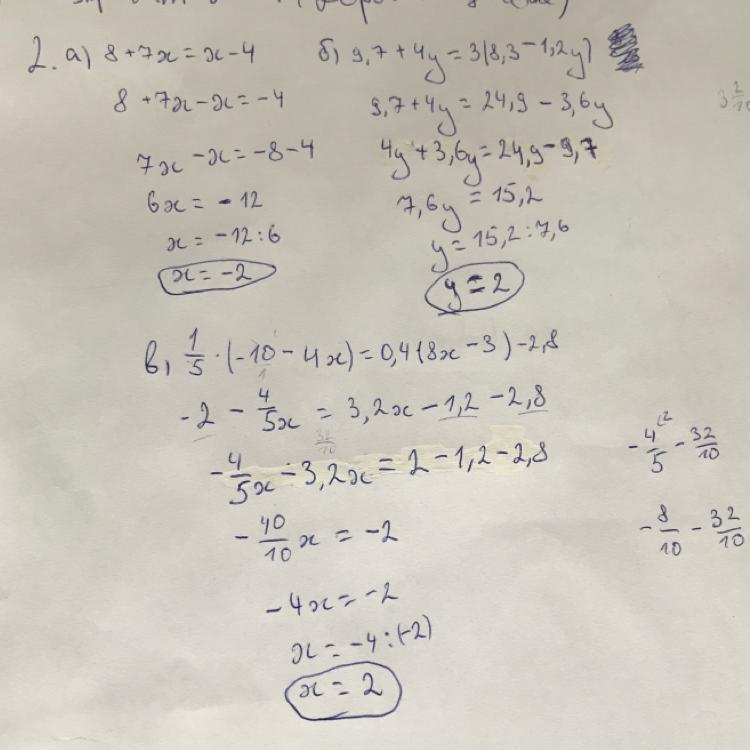 2. а) 8 + 7x = x - 4
8 + 7x - x = -4
7x - x = -8 - 4
6x = -12
x = -12 : 6
x = -2
б) 9,7 + 4y = 3(8,3 - 1,2y)
9,7 + 4y = 24,9 - 3,6y
4y + 3,6y = 24,9 - 9,7
7,6y = 15,2
y = 15,2 : 7,6
y = 2
в) 1/5 · (-10 - 4x) = 0,4(8x - 3) - 2,8
-2 - 4/5x = 3,2x - 1,2 - 2,8
32/10
-4/5x - 3,2x = 2 - 1,2 - 2,8
-40/10 x = -2
-4x = -2
x = -4 : (-2)
x = 2
-4/5 - 32/10
-8/10 - 32/10